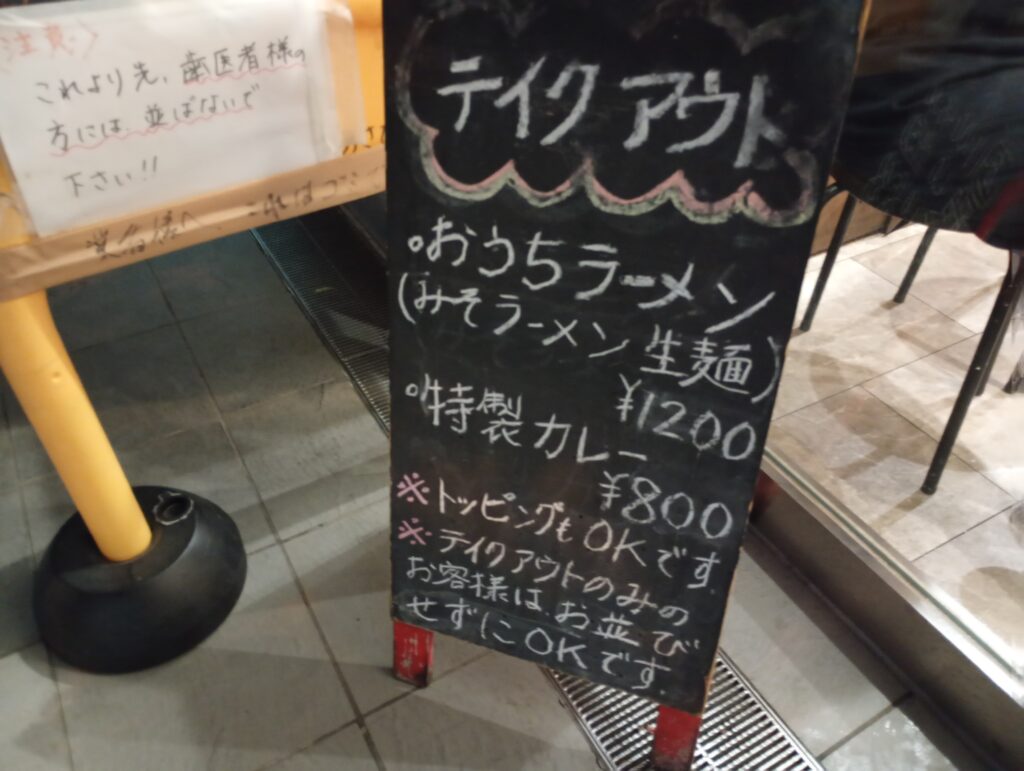 注意
これより先、歯医者様の
方には、並ばないで
下さい!!
これはゴミ
テイクアウト
おうちラーメン
(みそラーメン生麺)
¥1200
特製カレー
¥800
※トッピングもOKです.
※テイクアウトのみの
お客様は、お並び
せずにOKです.